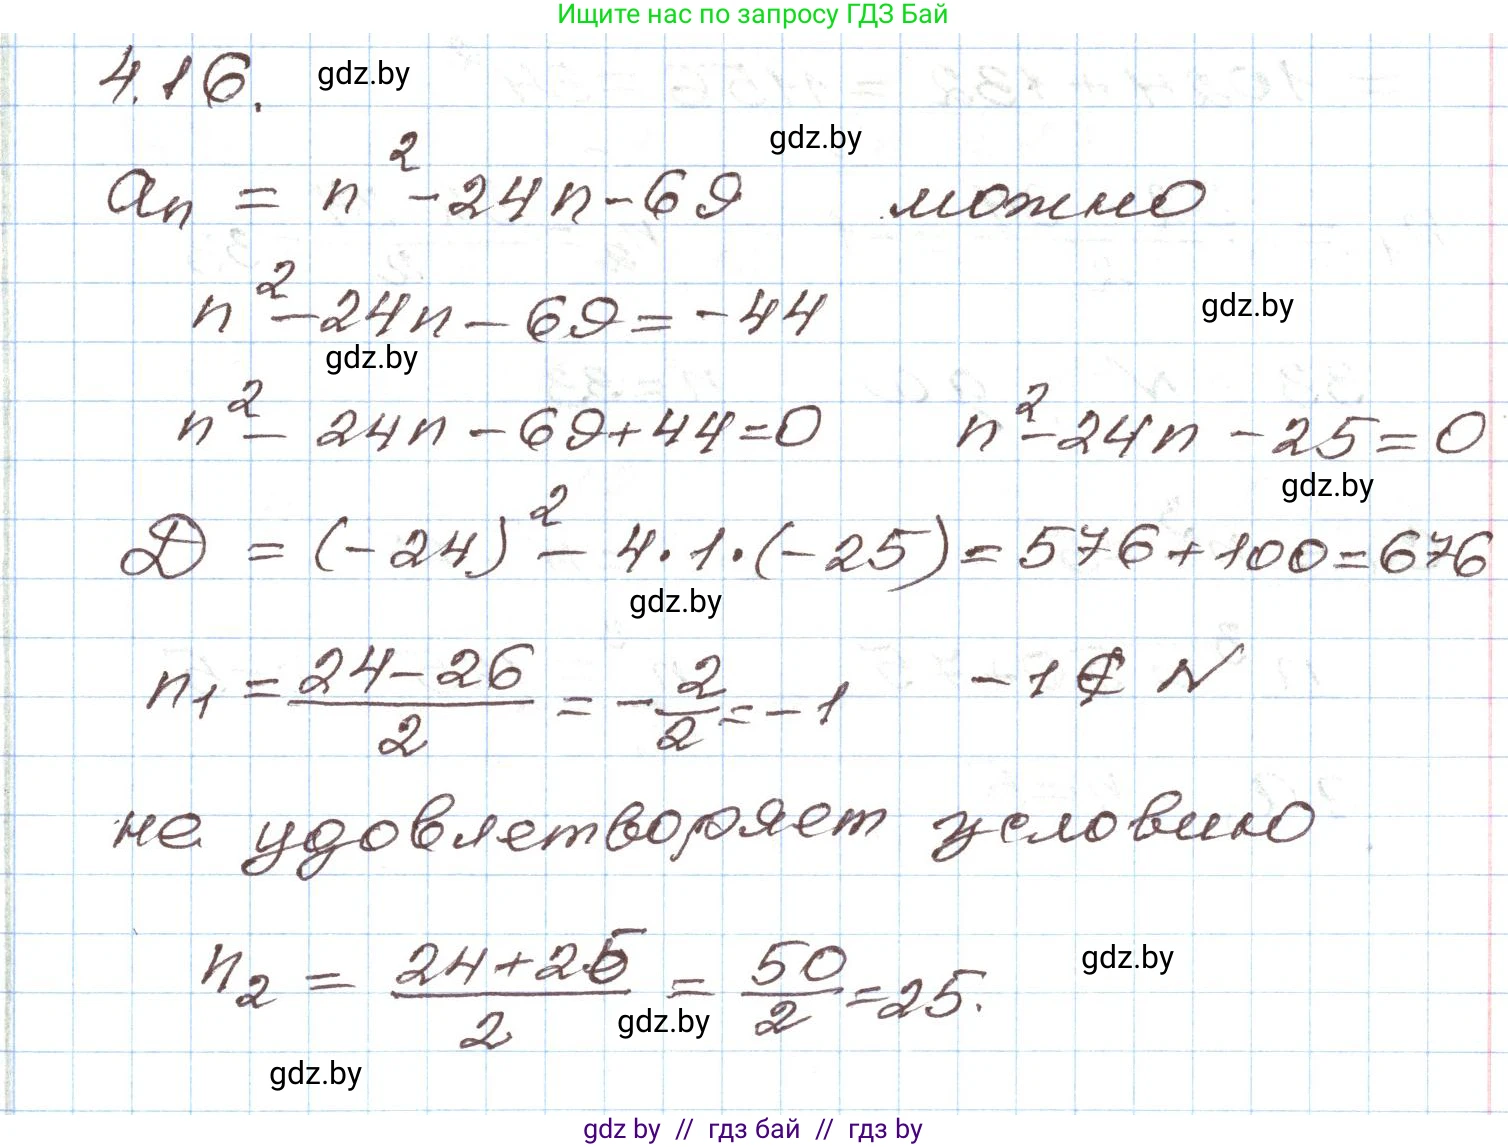 Ищите нас по запросу ГДЗ Бай
4.16. gdz.by
gdz.by
aₙ = n² - 24n - 69 можно
n² - 24n - 69 = -44 gdz.by
gdz.by
n² - 24n - 69 + 44 = 0 n² - 24n - 25 = 0
gdz.by
D = (-24)² - 4·1·(-25) = 576 + 100 = 676
gdz.by
n₁ = (24 - 26)/2 = -2/2 = -1 -1 ∉ N
не удовлетворяет условию
n₂ = (24 + 26)/2 = 50/2 = 25. gdz.by
gdz.by
gdz.by
gdz by // гдз бай // гдз by